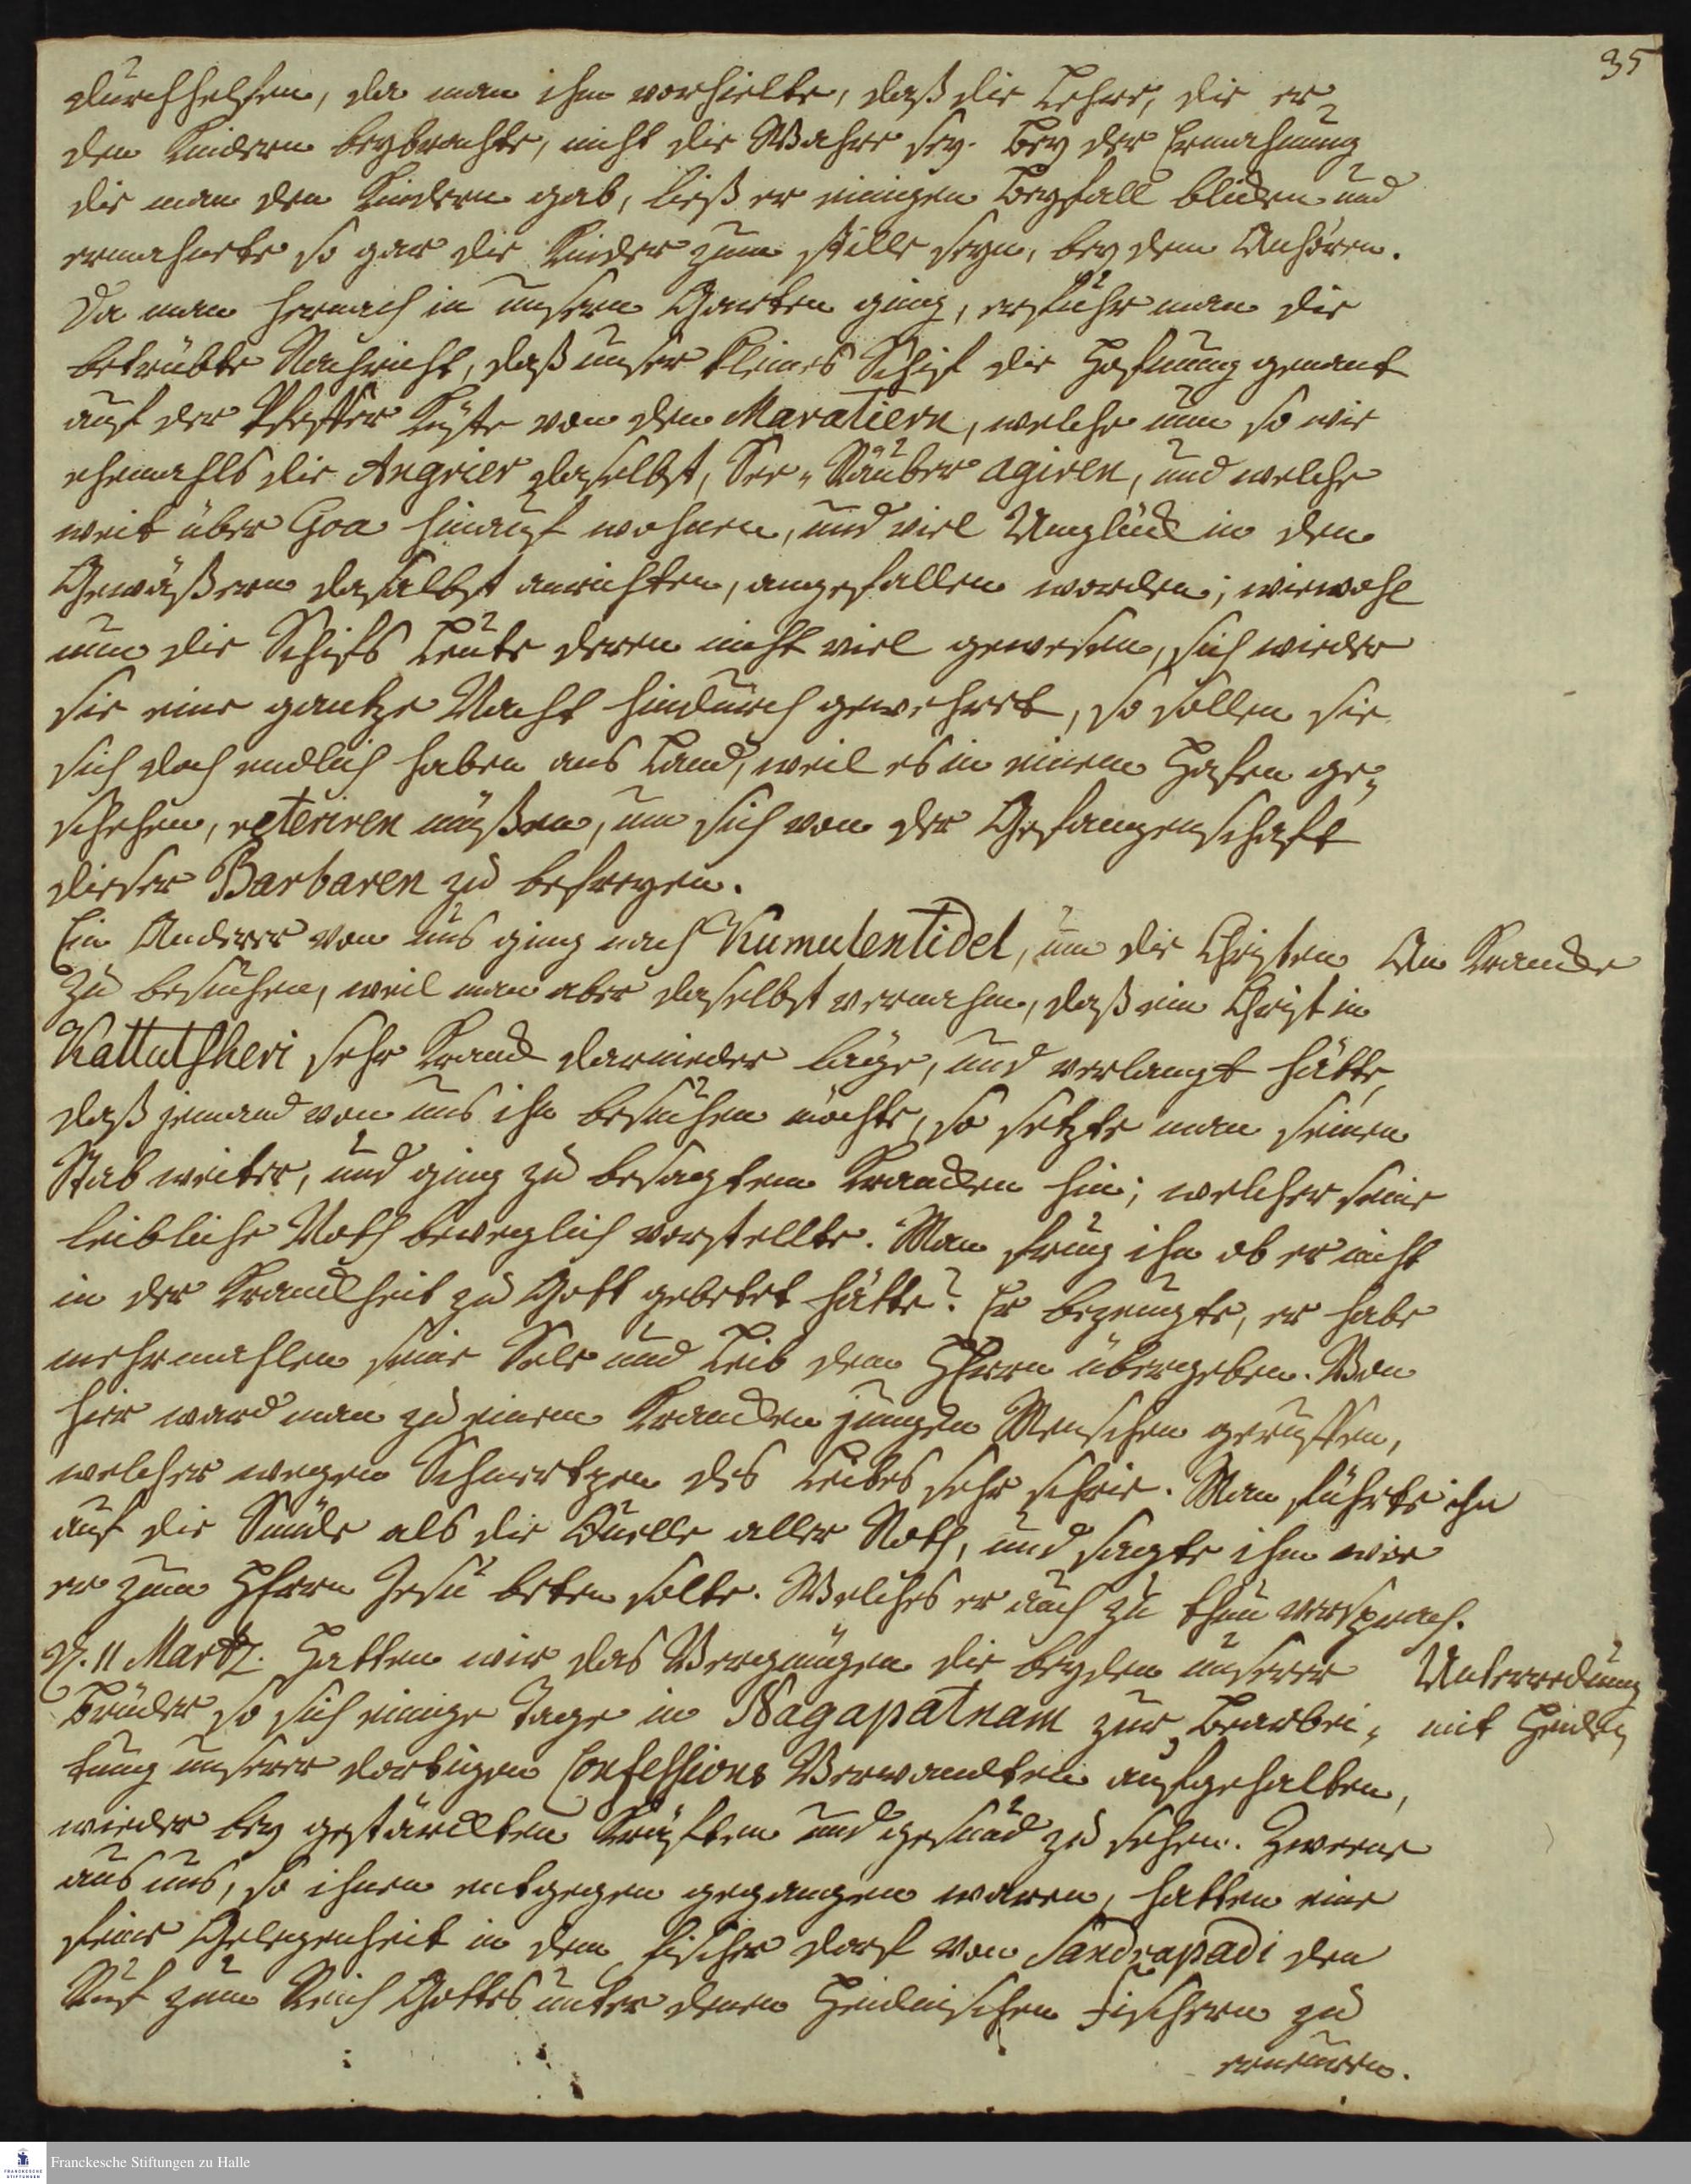 35
durchhelfen, da man ihm vorhielte, daß die Lehre, die er
den Kindern beybrachte, nicht die Wahre sey. Bey der Ermahnung
die man den Kindern gab, ließ er einigen Beyfall blicken und
ermahnete so gar die Kinder zum stille seyn, bey dem Anhören.
Da man hernach in unsern Garten ging, erfuhr man die
betrübte Nachricht, daß unser kleines Schif die Hofnung genant
auf der Pfeffer Küste von den Maratiern, welche nun so wie
ehemahls die Angrier daselbst, See-Räuber agiren, und welche
weit über Goa hinauf wohnen, und viel Unglück in den
Gewäßern daselbst anrichten, angefallen worden; wiewohl
nun die Schifs Leute deren nicht viel gewesen, sich wieder
sie eine gantze Nacht hindurch gewehret, so sollen sie
sich doch endlich haben ans Land, weil es in einem Hafen ge-
schehen, reteriren müßen, um sich von der Gefangenschaft
dieser Barbaren zu befreyen.
Ein Anderer von uns ging nach Kumulentidel, um die Christen
An Krancke
zu besuchen, weil man aber daselbst vernahm, daß ein Christ in
Kattutsheri sehr Kranck darnieder läge, und verlangt hätte,
daß jemand von uns ihn besuchen möchte, so setzte man seinen
Stab weiter, und ging zu besagtem Krancken hin; welcher seine
leibliche Noth beweglich vorstellte. Man frug ihn ob er nicht
in der Kranckheit zu Gott gebetet hätte? Er bezeugte, er habe
mehrmahlen seine Sele und Leib dem HErrn übergeben. Von
hier ward man zu einem Krancken jungen Menschen geruffen,
welcher wegen Schmertzen des Leibes sehr schrie. Man führte ihn
auf die Sünde als die Quelle aller Noth, und sagte ihm wie
er zum HErrn Jesu beten solte. Welches er auch zu thun versprach.
D. 11 Martz. Hatten wir das Vergnügen die beyden unserer
Unterredung
Brüder so sich einige Tage in Nagapatnam zur Bearbei-
mit Heiden
tung unserer dortigen Confessions Verwandten aufgehalten,
wieder bey gestärckten Kräften und gesund zu sehen. Zweene
aus uns, so ihnen entgegen gegangen waren, hatten eine
feine Gelegenheit in dem fischer dorf von Sandrapadi den
Ruf zum Reich Gottes unter denen Heidnischen Fischern zu
erneuren.
Franckesche Stiftungen zu Halle
FRANCKESCHE STIFTUNGEN